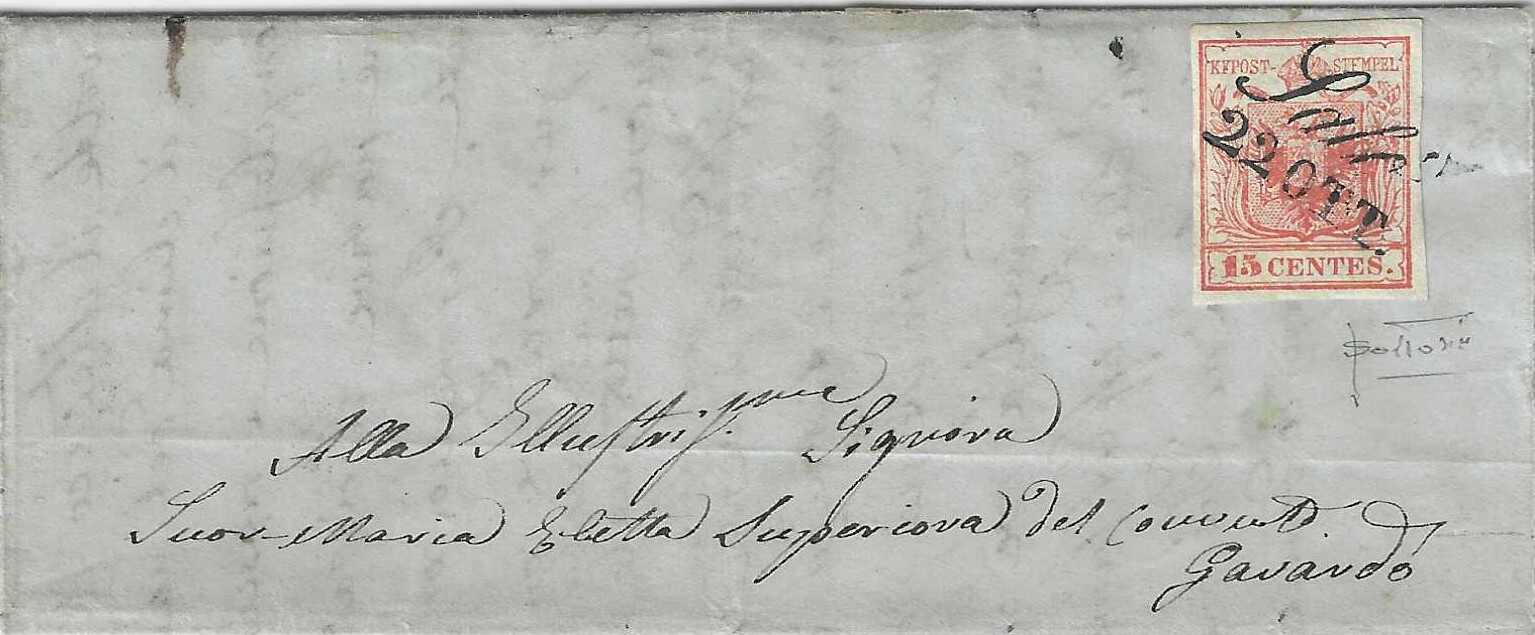 KKPOST- STEMPEL
Salò
22 OTT.
15 CENTES.
Alla Illustris.ma Signora
Suor Maria Eletta Superiora del Convento
Gavardo